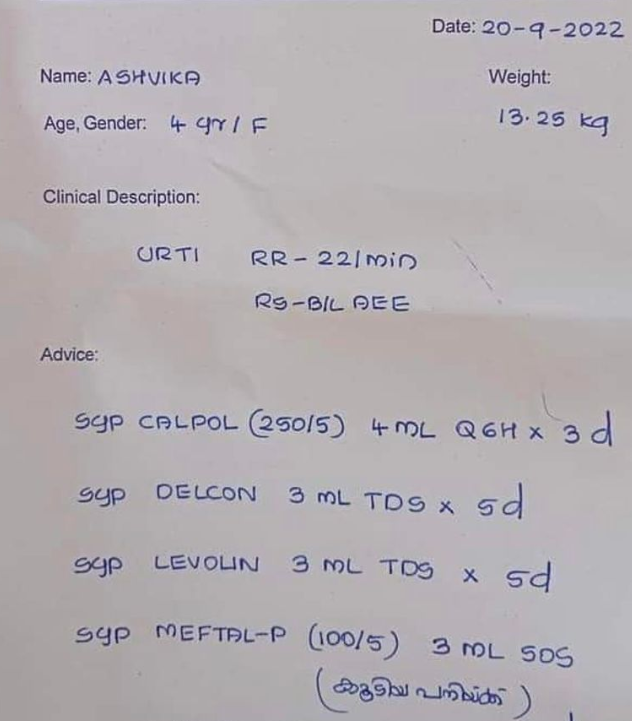 Date: 20-9-2022
Name: ASHVIKA Weight:
Age, Gender: 4 yr / F 13.25 kg
Clinical Description:
URTI RR - 22/min
RS - B/L AEE
Advice:
Syp CALPOL (250/5) 4 mL Q6H x 3 d
Syp DELCON 3 mL TDS x 5d
Syp LEVOLIN 3 mL TDS x 5d
Syp MEFTAL-P (100/5) 3 mL SOS
(കൂടിയ പനിയ്ക്ക്)